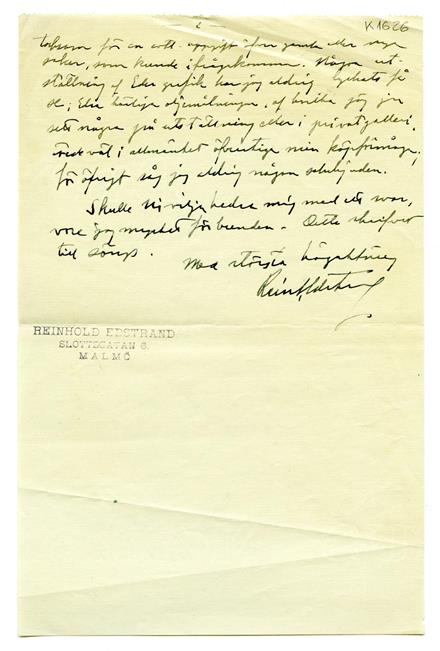 2
K1626
för en sådan uppgift öfver gamla eller nya
saker, som kunde ifrågakomma. Någon ut-
ställning af Eder grafik har jag aldrig lyckats få
se; Eder härliga oljemålningar, af hvilka jag ju
sett några på utställning eller i privatgalleri,
i allmänhet min köpförmåga,
för öfrigt såg jag aldrig någon
Skulle Ni vilja hedra mig med ett svar,
vore jag mycket förbunden. Detta
till
Med största högaktning
Reinh Edstrand
REINHOLD EDSTRAND
SLOTTSGATAN 6.
MALMÖ